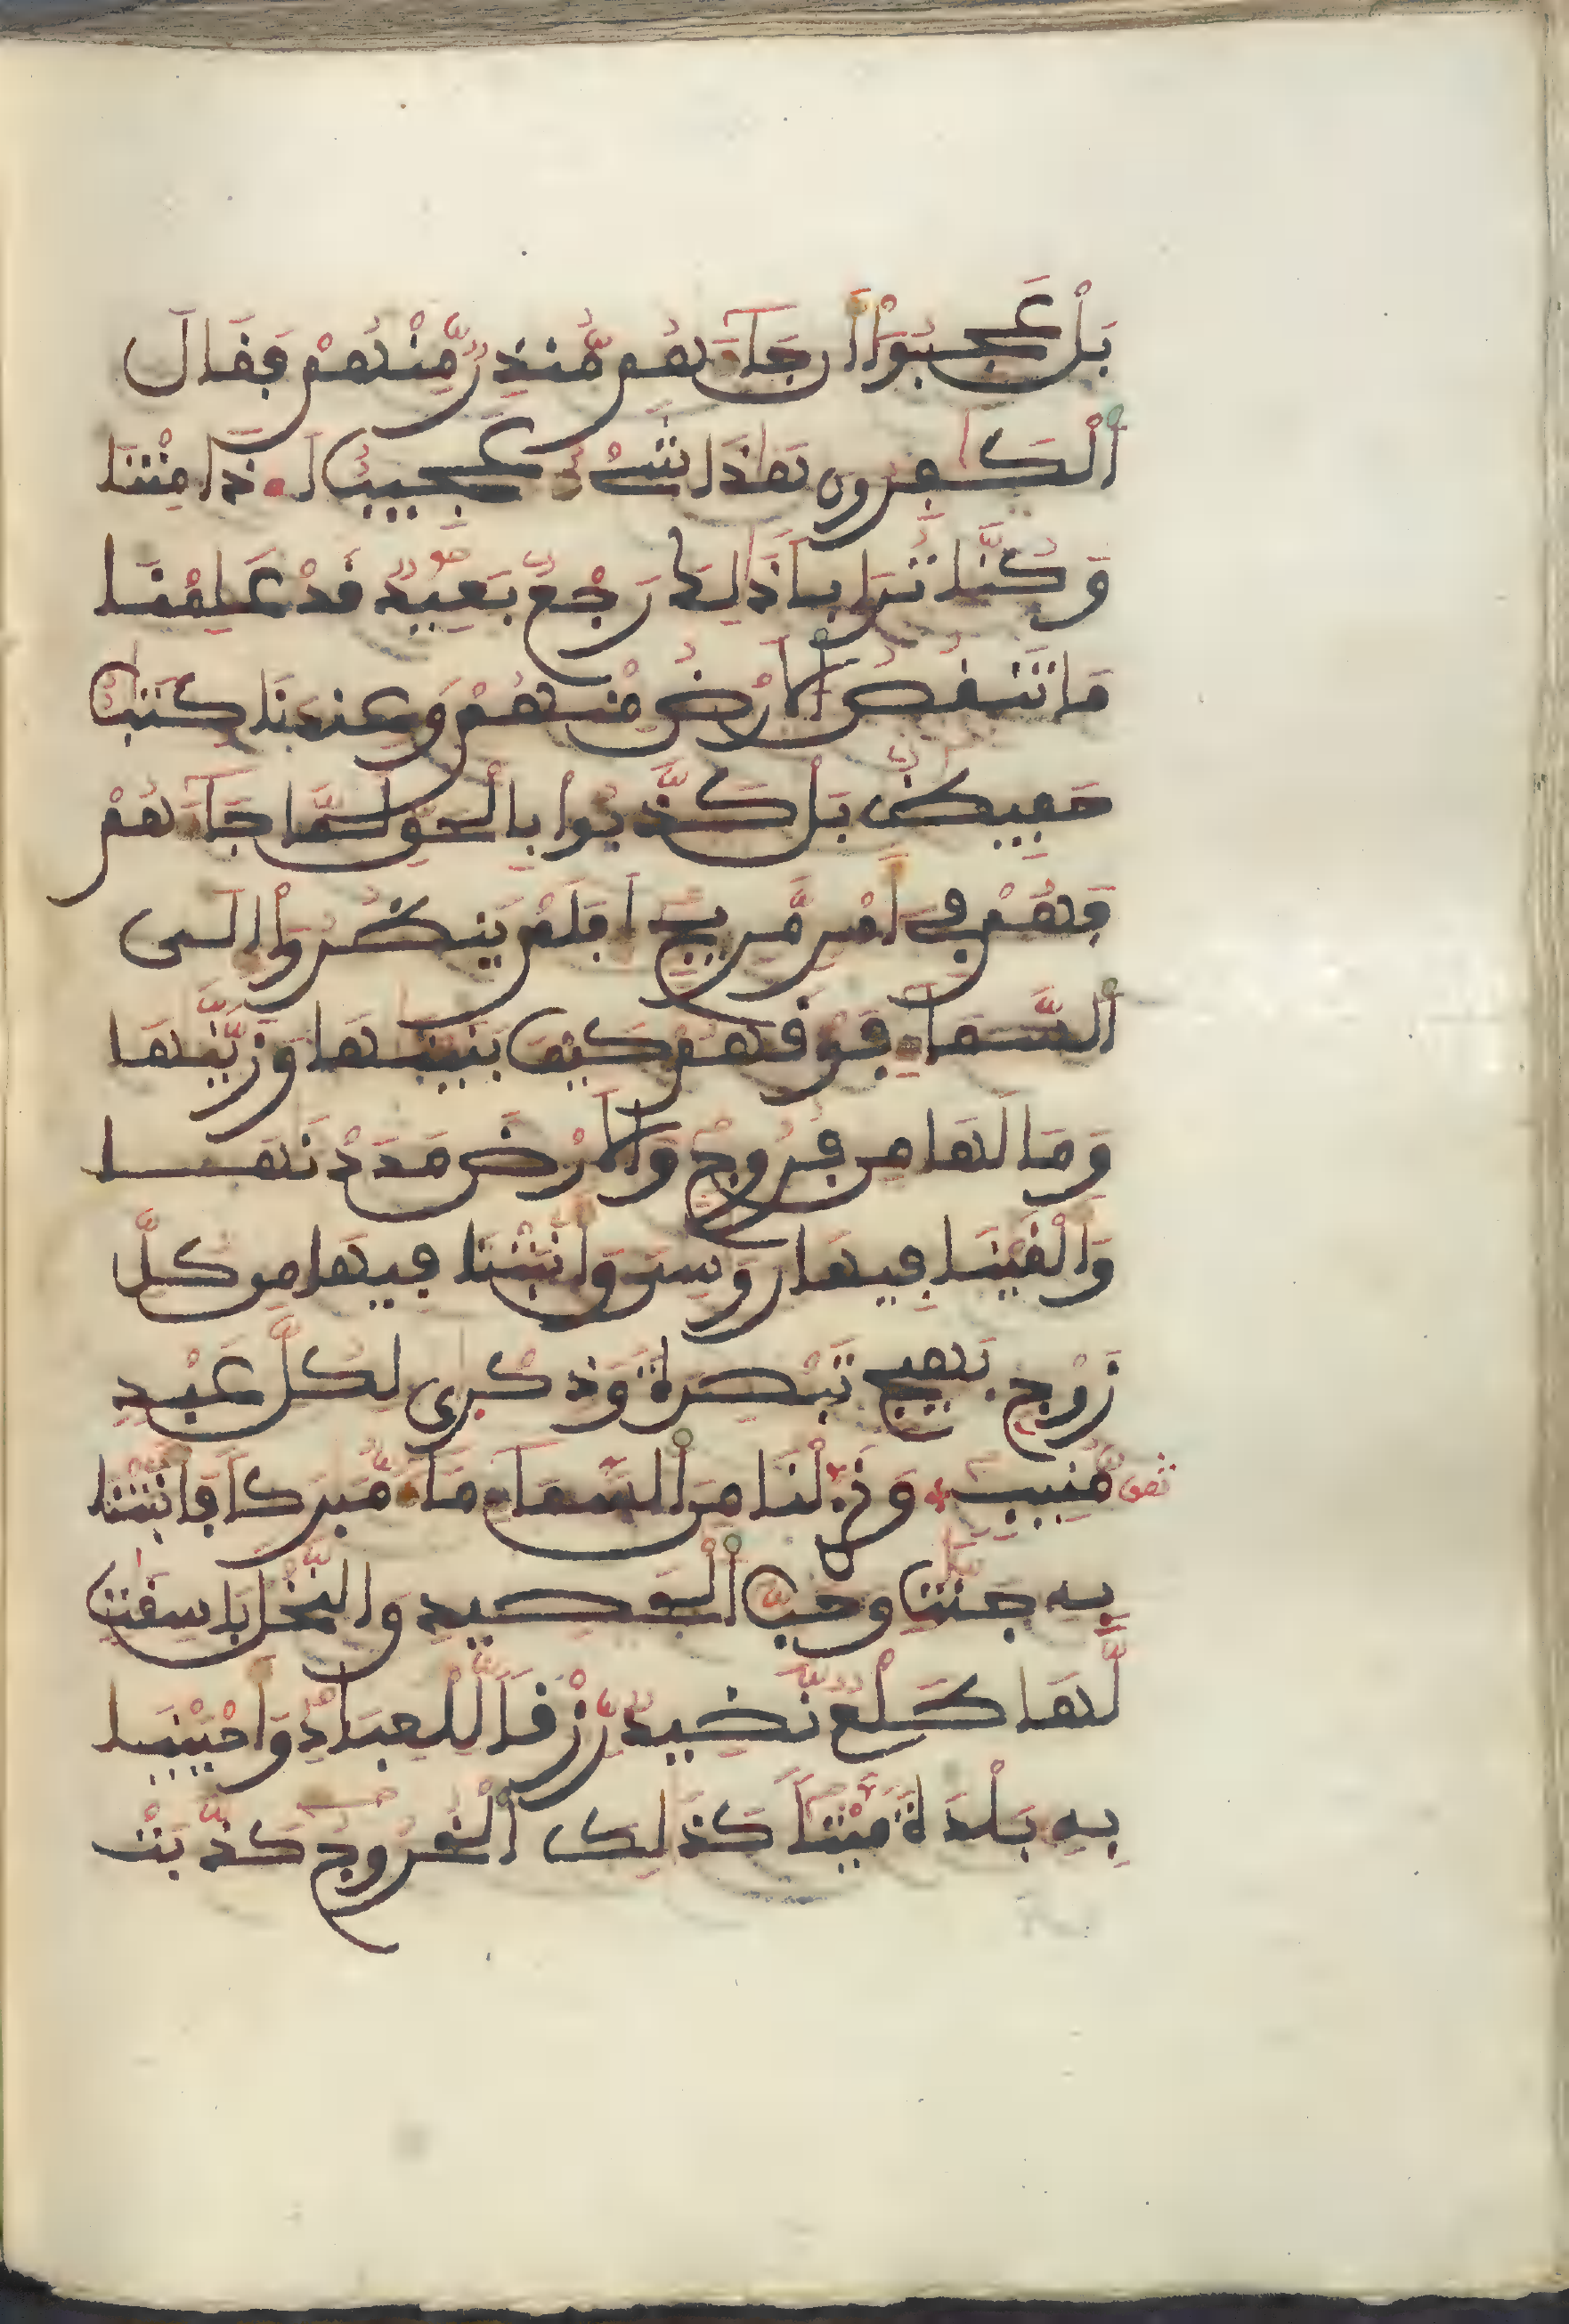 بَلْ عَجِبُوٓاْ أَن جَآءَهُم مُّنذِرٌ مِّنْهُمْ فَقَالَ
اَ۬لْكَٰفِرُونَ هَٰذَا شَےْءٌ عَجِيبٌ اَ۟ذَا مِتْنَا
وَكُنَّا تُرَاباٗ ذَٰلِكَ رَجْعُۢ بَعِيدٞ قَدْ عَلِمْنَا
مَا تَنقُصُ اُ۬لَارْضُ مِنْهُمْ وَعِندَنَا كِتَٰبٌ
حَفِيظُۢ بَلْ كَذَّبُواْ بِالْحَقِّ لَمَّا جَآءَهُمْ
فَهُمْ فِےٓ أَمْرٖ مَّرِيجٍ اَفَلَمْ يَنظُرُوٓاْ إِلَى
اَ۬لسَّمَآءِ فَوْقَهُمْ كَيْفَ بَنَيْنَٰهَا وَزَيَّنَّٰهَا
وَمَا لَهَا مِن فُرُوجٖ وَالَارْضَ مَدَدْنَٰهَا
وَأَلْقَيْنَا فِيهَا رَوَٰسِيَ وَأَنۢبَتْنَا فِيهَا مِن كُلِّ
زَوْجِۢ بَهِيجٖ تَبْصِرَةٗ وَذِكْر۪ىٰ لِكُلِّ عَبْدٖ
ثمن مُّنِيبٖ وَنَزَّلْنَا مِنَ اَ۬لسَّمَآءِ مَآءٗ مُّبَٰرَكاٗ فَأَنۢبَتْنَا
بِهِۦ جَنَّٰتٖ وَحَبَّ اَ۬لْحَصِيدِ وَالنَّخْلَ بَاسِقَٰتٖ
لَّهَا طَلْعٞ نَّضِيدٞ رِّزْقاٗ لِّلْعِبَادِ وَأَحْيَيْنَا
بِهِۦ بَلْدَةٗ مَّيْتاٗ كَذَٰلِكَ اَ۬لْخُرُوجُ كَذَّبَتْ